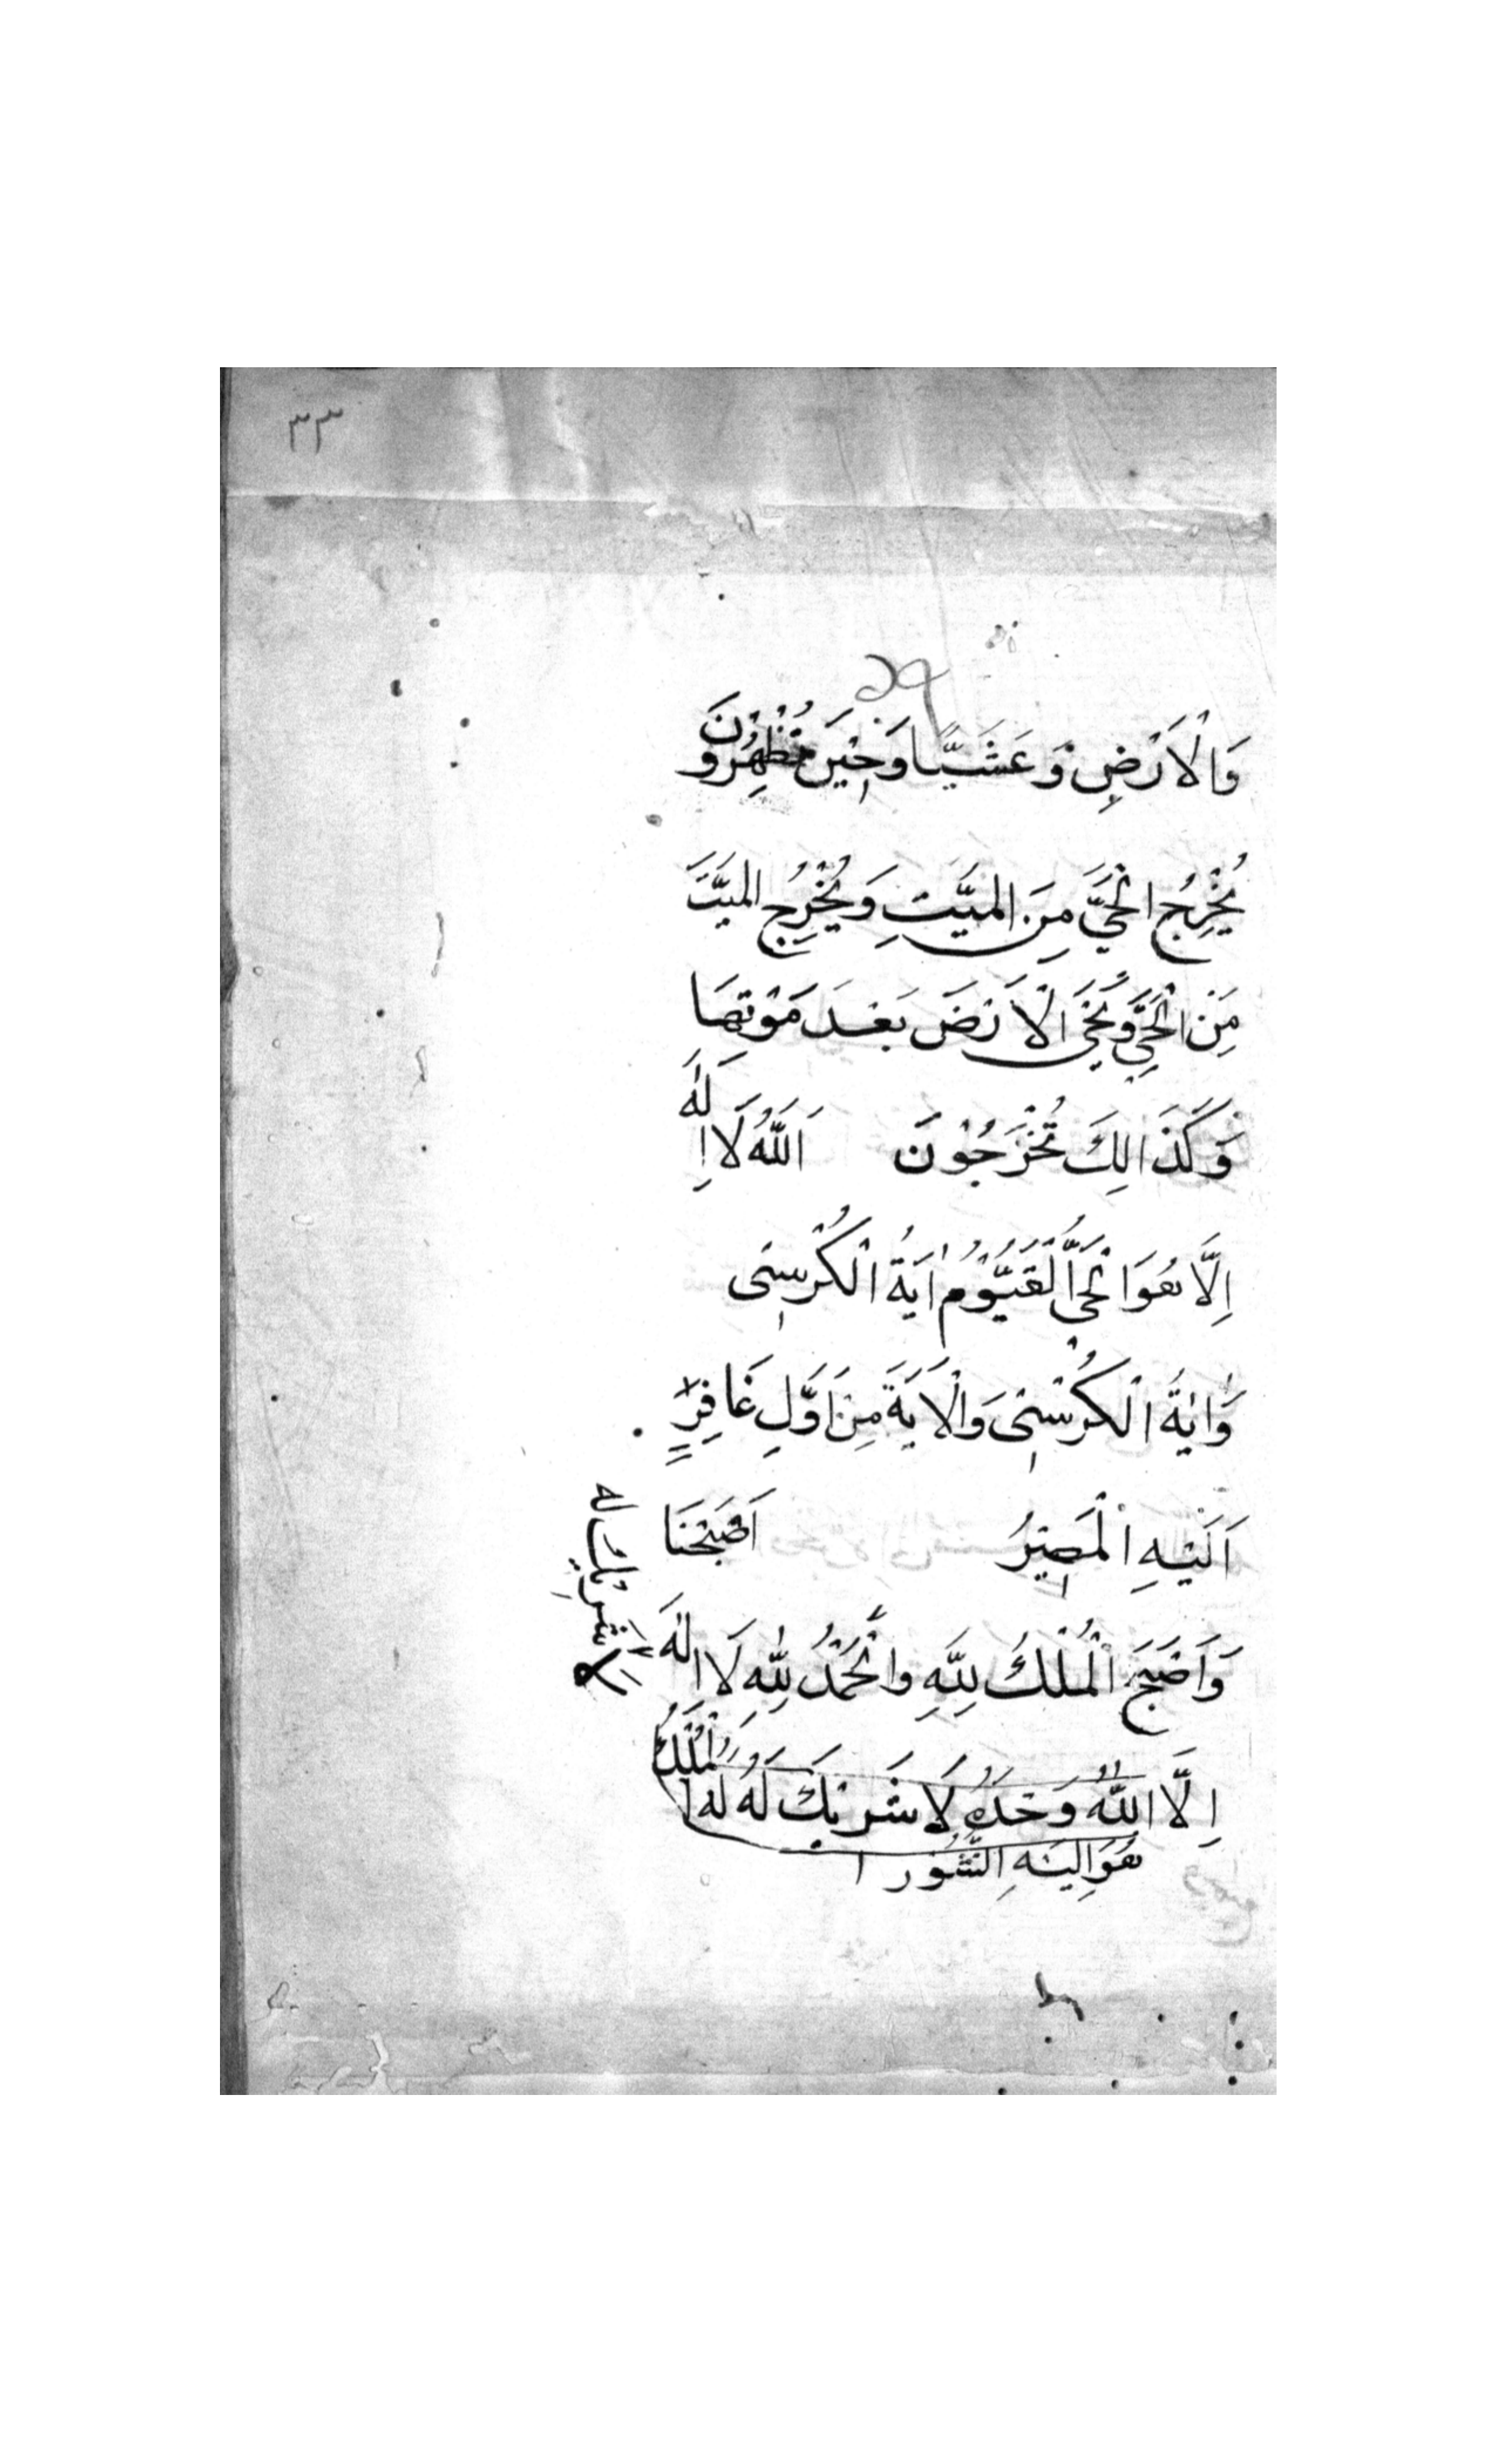 ٣٣
وَالْاَرْضِ وَعَشَيًّا وَحِيْنَ تُظْهِرُونَ
يُخْرِجُ الْحَيَّ مِنَ الميَّتِ وَيُخْرِجُ الميَّتَ
مِنَ الْحَيِّ وَيُحْيِ الْاَرْضَ بَعْدَ مَوْتِهَا
وَكَذَالِكَ تُخْرَجُوْنَ اَللّٰهُ لَا اِلٰهَ
اِلَّا هُوَ الْحَيُّ الْقَيُّوْمُ اٰيَةُ الْكُرْسِى
وَاٰيَةُ الْكُرْسِىِ وَالْاَيَةَ مِنْ اَوَّلِ غَافِرٍ
اَلَيْهِ الْمَصِيْرُ اَصْبَحْنَا
وَاَصْبَحَ الْمُلْكُ لِلّٰهِ وَالْحَمْدُ لِلّٰهِ لَا اِلٰهَ
اِلَّا اللّٰهُ وَحْدَهُ لَا شَرِيْكَ لَهُ لَهُ الْمُلْكُ
هُوَ اِلَيْهِ النُّشُوْر
لا شريك له